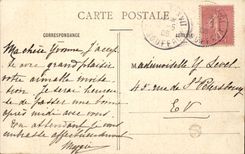 CARTE POSTALE
CORRESPONDANCE
Ma chère Yvonne, J'accep
te avec grand plaisir
votre aimable invita
tion. Je serai heureu
se de passer une bonne
après midi avec vous
En attendant je vous
embrasse affectueusement
Mademoiselle Y
43 rue de St Petersbourg
E V